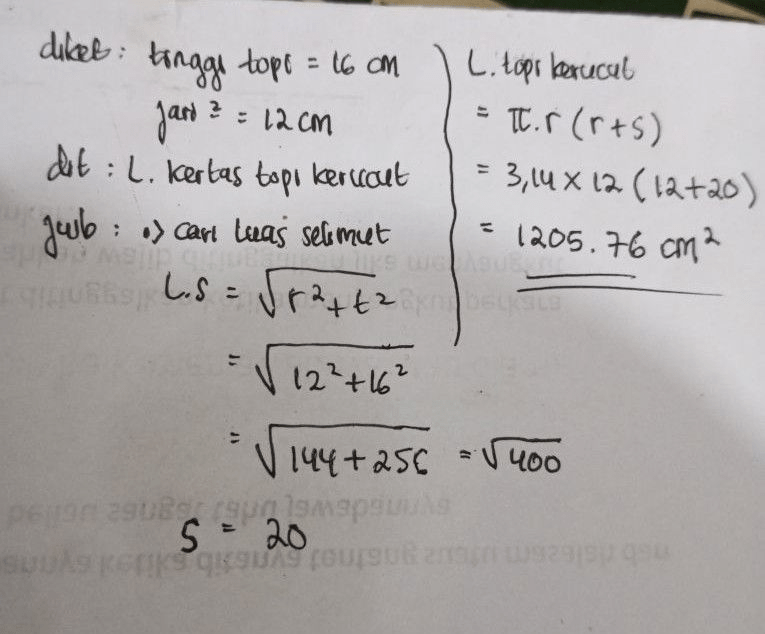 diket : tinggi topi = 16 cm
jari² = 12 cm
dit : L. kertas topi kerucut
jwb : •> cari luas selimut
L.S = √r²+t²
= √12²+16²
= √144+256 = √400
S = 20
L. topi kerucut
= π.r (r+s)
= 3,14 × 12 (12+20)
= 1205.76 cm²